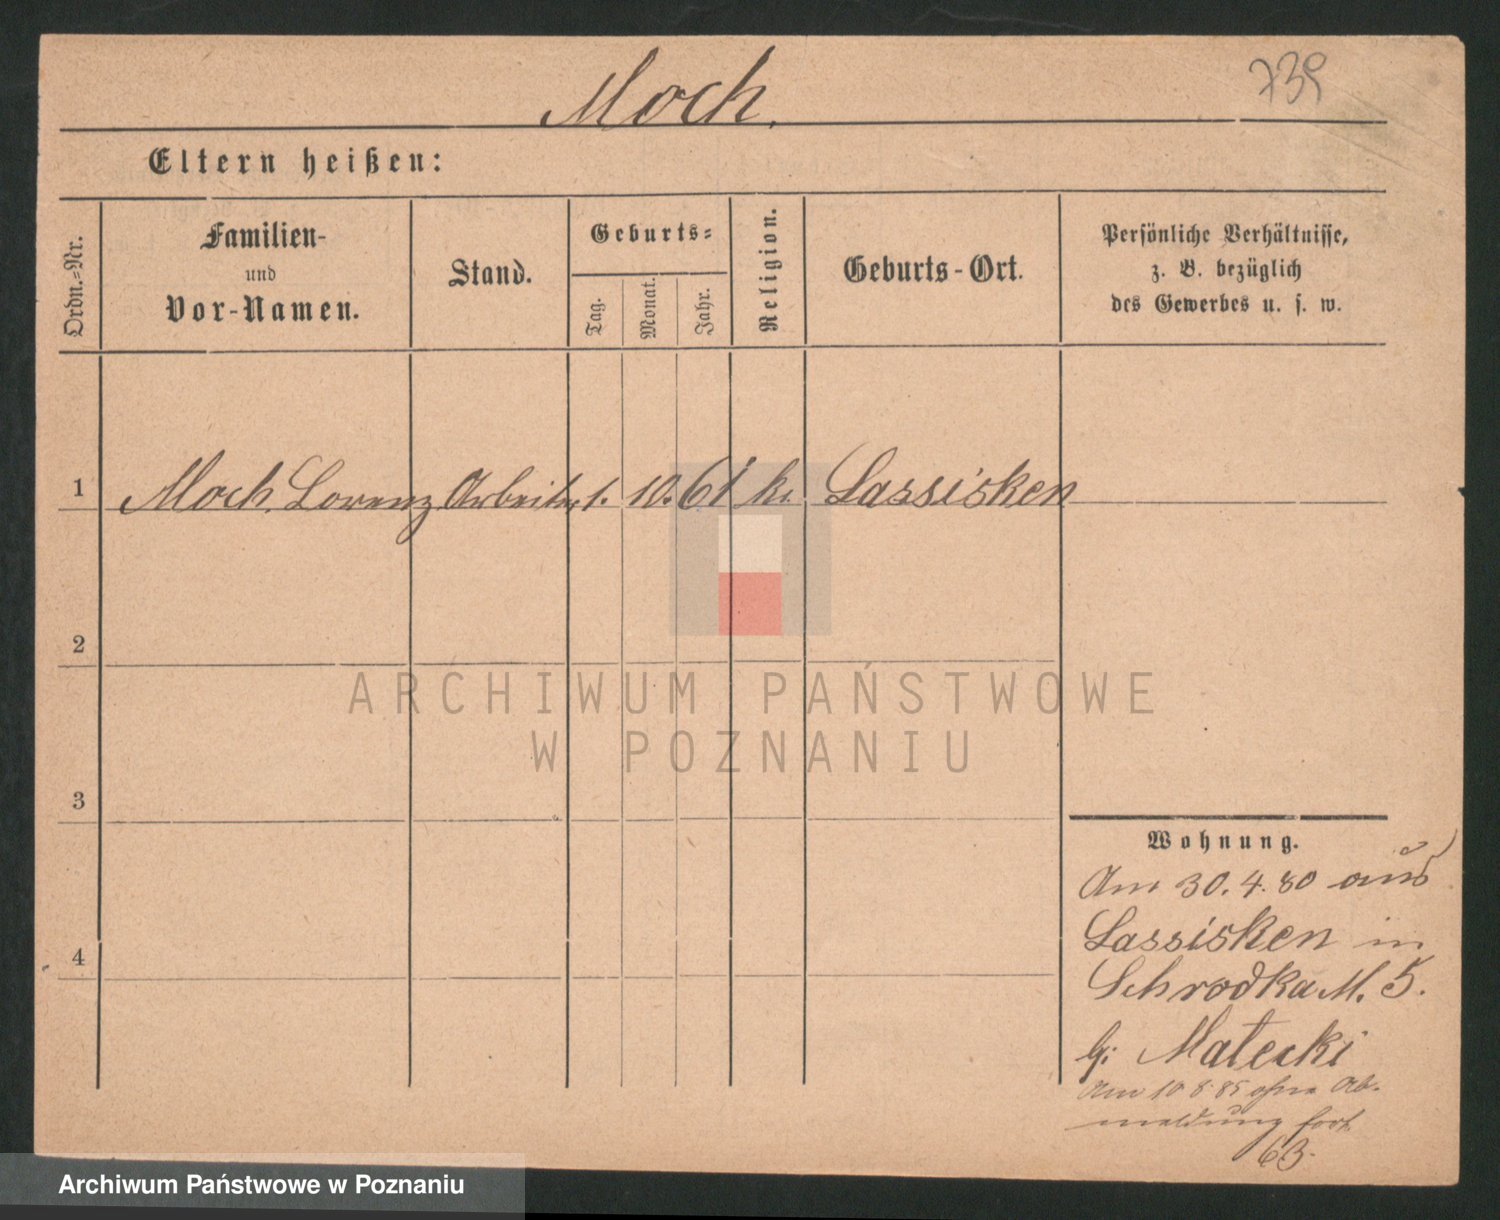 Moch.
739
Eltern heißen:
Ordn.-Nr.
Familien-
und
Vor-Namen.
Stand.
Geburts-
Tag.
Monat.
Jahr.
Religion.
Geburts-Ort.
Persönliche Verhältnisse,
z. B. bezüglich
des Gewerbes u. s. w.
1 Moch, Lorenz Arbeiter 1. 10. 61 k. Lassisken
2
ARCHIWUM PAŃSTWOWE
W POZNANIU
3
4
Wohnung.
Am 30. 4. 80 aus
Lassisken in
Schrodka M. 5.
b: Matecki
Am 10 8 85 ohne Ab-
meldung fort
63.
Archiwum Państwowe w Poznaniu